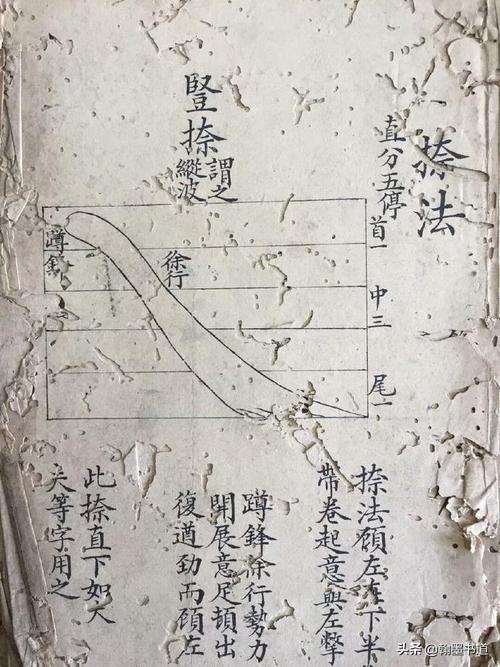 捺法
直分五停
首一
中三
尾一
豎捺
謂之
縱波
徐行
蹲鋒
捺法顧左在下半
帶卷起意與左撆
蹲鋒徐行勢力
開展意足頓出
復遒勁而顧左
此捺直下如大
夫等字用之
头条 @翰墨书道